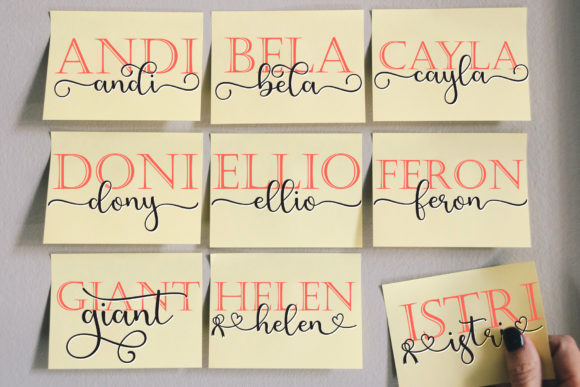 ANDI
andi
BELA
bela
CAYLA
cayla
DONI
dony
ELLIO
ellio
FERON
feron
GIANT
giant
HELEN
helen
ISTRI
istri